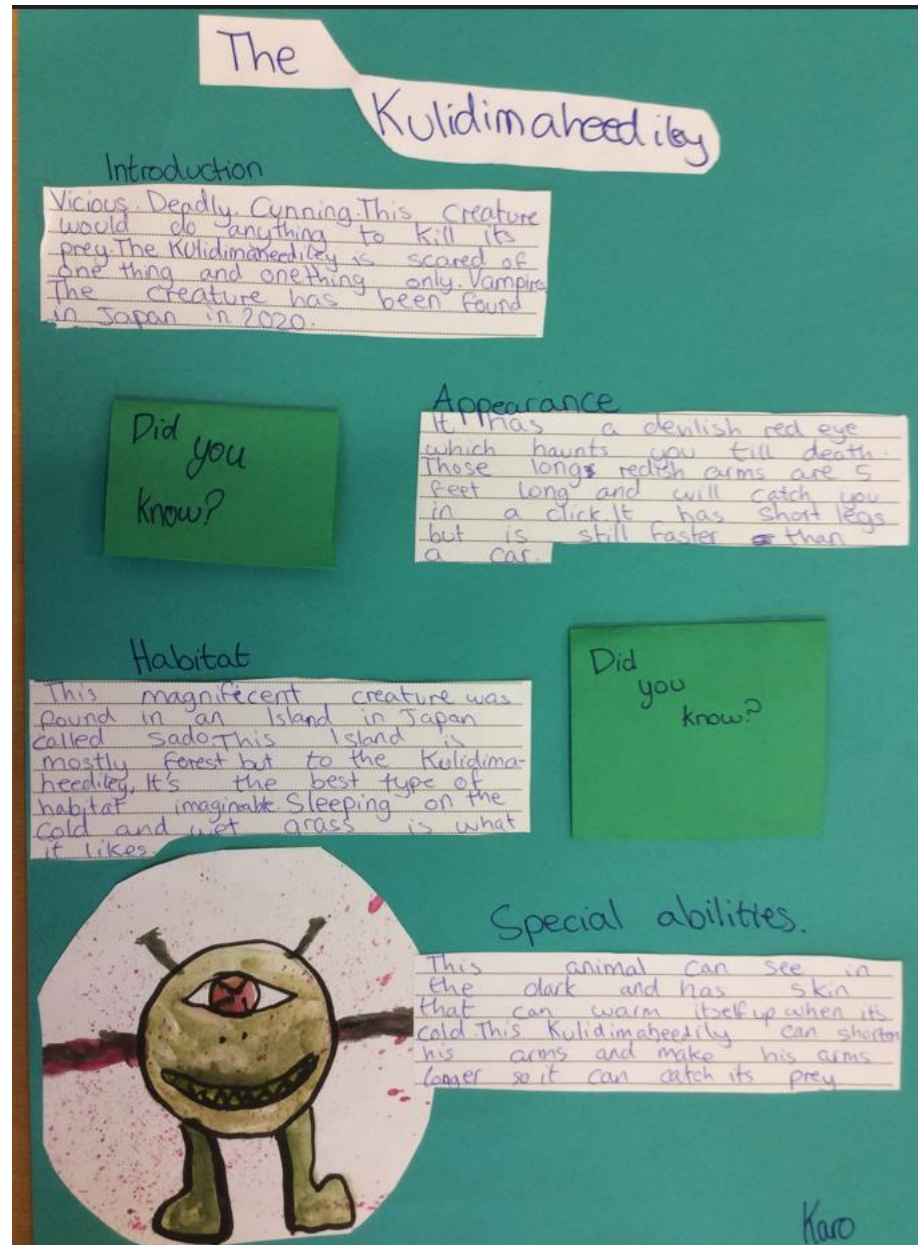 The
Kulidimaheediley
Introduction
Vicious. Deadly. Cunning. This creature
would do anything to kill its
prey. The Kulidimaheediley is scared of
one thing and one thing only. Vampire
The creature has been found
in Japan in 2020.
Did
you
know?
Appearance
It has a devilish red eye
which haunts you till death.
Those long redish arms are 5
feet long and will catch you
in a click. It has short legs
but is still faster than
a car.
Habitat
This magnifecent creature was
found in an Island in Japan
called Sado. This Island is
mostly forest but to the Kulidima-
heediley, It's the best type of
habitat imaginable. Sleeping on the
cold and wet grass is what
it likes.
Did
you
know?
Special abilities.
This animal can see in
the dark and has skin
that can warm itself up when its
cold. This Kulidimaheedily can shorten
his arms and make his arms
longer so it can catch its prey
Karo